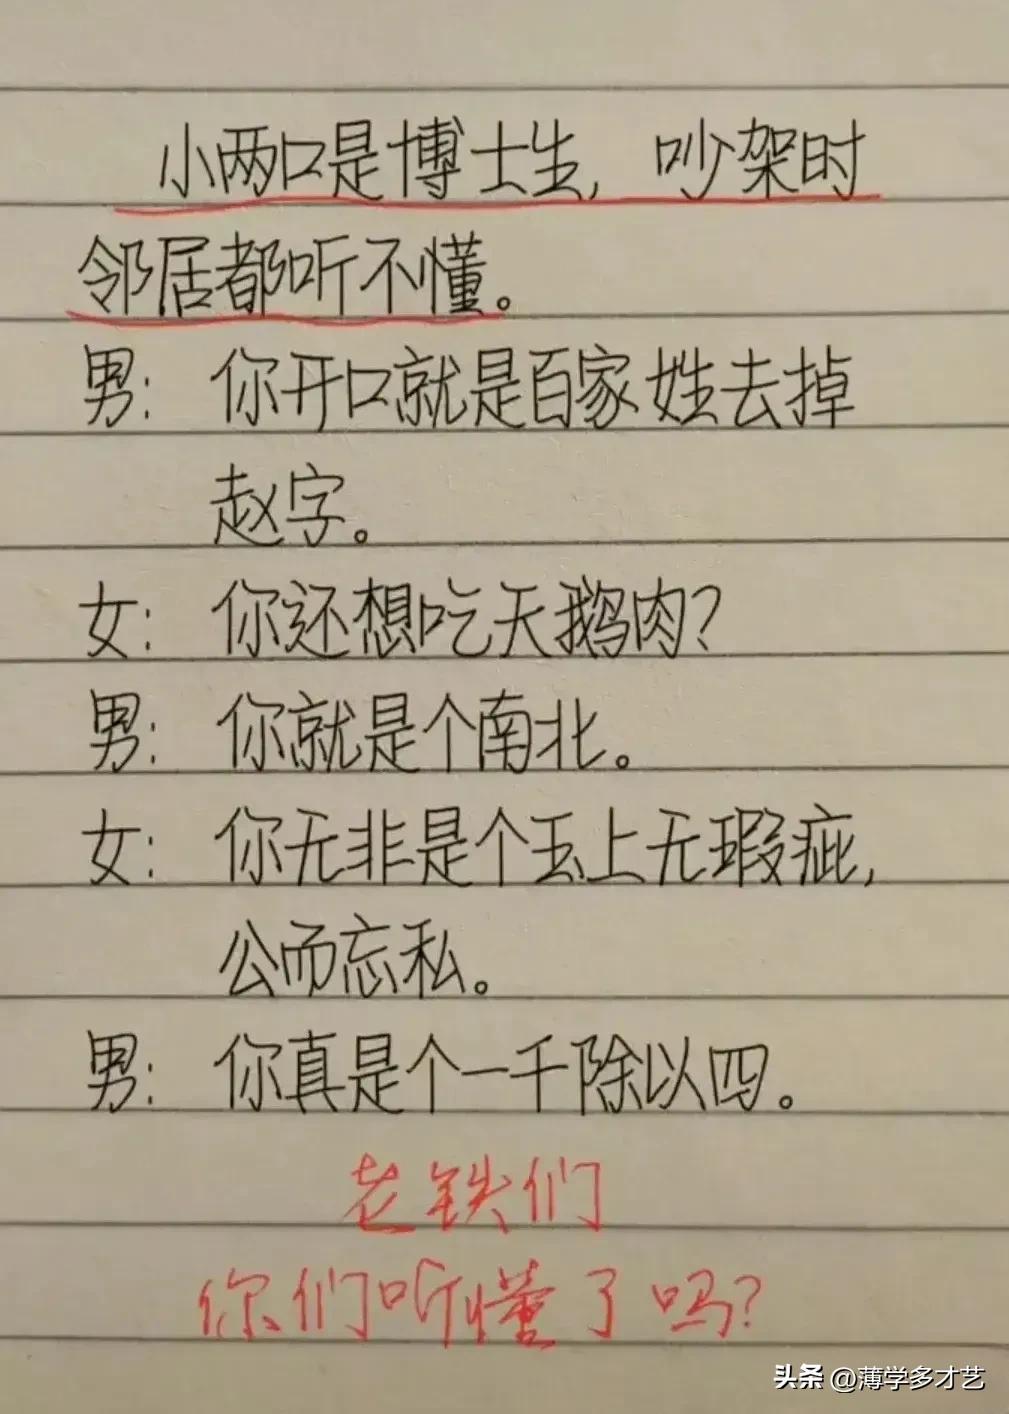 小两口是博士生，吵架时
邻居都听不懂。
男：你开口就是百家姓去掉
赵字。
女：你还想吃天鹅肉？
男：你就是个南北。
女：你无非是个玉上无瑕疵，
公而忘私。
男：你真是个一千除以四。
老铁们
你们听懂了吗？
头条 @薄学多才艺